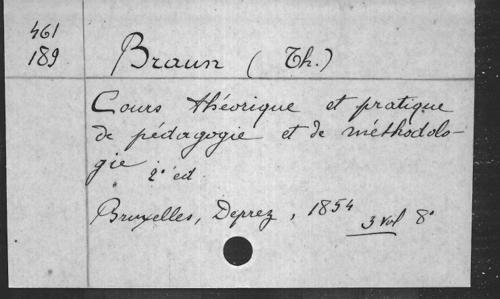 461
189
Braun (Th.)
Cours théorique et pratique
de pédagogie et de méthodolo-
gie 2e ed.
Bruxelles, Deprez, 1854
3 vol 8°